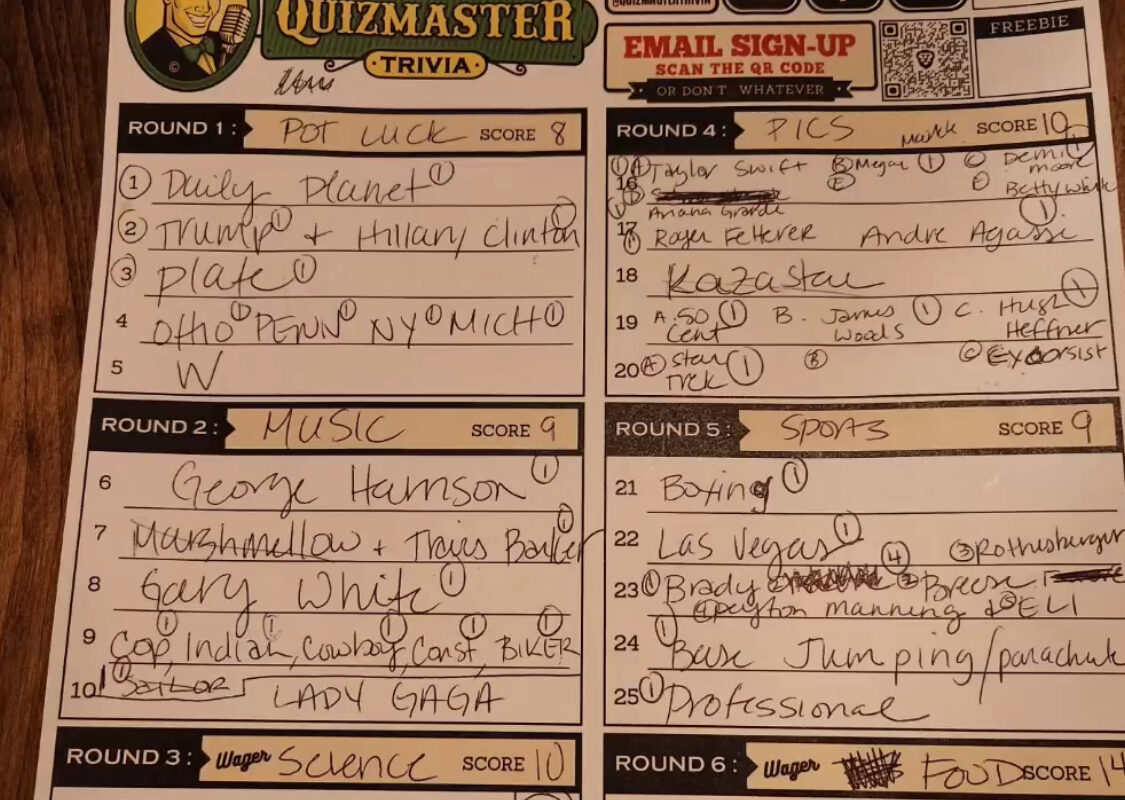 @QUIZMASTERTRIVIA
QUIZMASTER
TRIVIA
EMAIL SIGN-UP
SCAN THE QR CODE
OR DON'T WHATEVER
FREEBIE
ROUND 1: POT LUCK SCORE 8
① Daily Planet ①
② Trump ① + Hillary Clinton ①
③ plate ①
4 OHIO ① PENN ① NY ① MICH ①
5 W
ROUND 2: MUSIC SCORE 9
6 George Harrison ①
7 Marshmellow + Travis Barker ①
8 Gary White ①
9 Cop ①, Indian ①, Cowboy ①, Const ①, BIKER ①
10 ① SAILOR LADY GAGA
ROUND 3: Wager Science SCORE 10
ROUND 4: PICS SCORE 10
① Ⓐ Taylor Swift Ⓑ Megan ① Ⓒ Demi ①
moore
16 Ⓓ Ⓔ Betty White
① Ariana Grande
17 ① Roger Fetterer Andre Agassi ①
18 Kazastan
19 A. 50 ① B. James ① C. Hugh ①
Cent Woods Heffner
20 Ⓐ Star ① Ⓑ Ⓒ Exorsist
Trek
ROUND 5: SPORTS SCORE 9
21 Boxing ①
22 Las Vegas ① ③ Rothesburger
23 ① Brady ④ ② Breese
④ peyton manning & ⑤ ELI
24 ① Base Jumping/parachute
25 ① Professional
ROUND 6: Wager FOOD SCORE 14